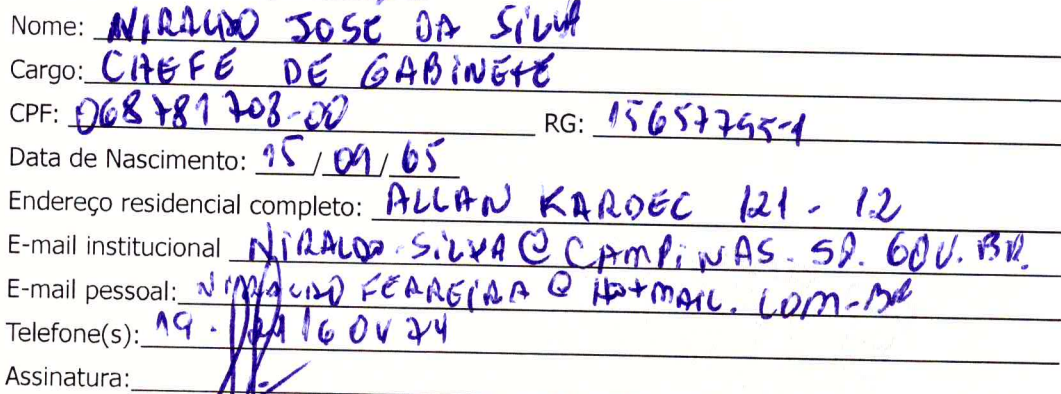 Nome: NIRALDO JOSE DA SILVA
Cargo: CHEFE DE GABINETE
CPF: 068781708-00 RG: 15657795-1
Data de Nascimento: 15/09/65
Endereço residencial completo: ALLAN KARDEC 121 - 12
E-mail institucional NIRALDO.SILVA@CAMPINAS.SP.GOV.BR.
E-mail pessoal: FERREIRA@HOTMAIL.COM-BR
Telefone(s): 19.
Assinatura: